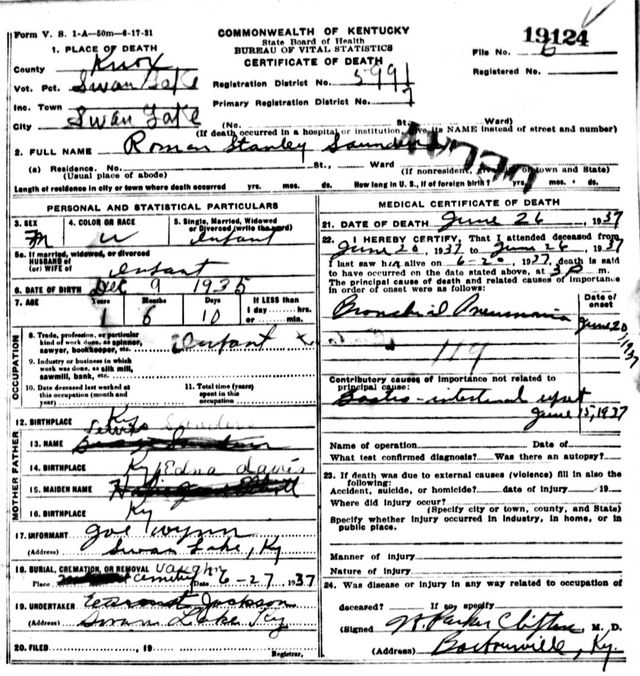 Form V. S. 1-A—50m—6-17-31
COMMONWEALTH OF KENTUCKY
State Board of Health
BUREAU OF VITAL STATISTICS
CERTIFICATE OF DEATH
19124
File No. 6
Registered No.
1. PLACE OF DEATH
County Knox
Vot. Pct. Swan Lake
Inc. Town
City Swan Lake
Registration District No. 5991
Primary Registration District No.
(No. St. Ward)
(If death occurred in a hospital or institution, give its NAME instead of street and number)
2. FULL NAME Roman Stanley Saunders
(a) Residence. No. St., Ward
(Usual place of abode) (If nonresident, give city or town and State)
Length of residence in city or town where death occurred yrs. mos. ds. How long in U. S., if of foreign birth? yrs. mos. ds.
PERSONAL AND STATISTICAL PARTICULARS
3. SEX M
4. COLOR OR RACE W
5. Single, Married, Widowed or Divorced (write the word) infant
5a. If married, widowed, or divorced
HUSBAND of
(or) WIFE of infant
6. DATE OF BIRTH Dec 9 1935
7. AGE Years Months Days If LESS than
1 6 10 1 day hrs.
or min.
OCCUPATION
8. Trade, profession, or particular
kind of work done, as spinner,
sawyer, bookkeeper, etc. infant x
9. Industry or business in which
work was done, as silk mill,
sawmill, bank, etc.
10. Date deceased last worked at
this occupation (month and
year)
11. Total time (years)
spent in this
occupation
MOTHER FATHER
12. BIRTHPLACE Ky
13. NAME
14. BIRTHPLACE Ky
Edna Davis
15. MAIDEN NAME
16. BIRTHPLACE Ky
17. INFORMANT Joe Wynn
(Address) Swan Lake, Ky
18. BURIAL, CREMATION, OR REMOVAL Vaughn
Place cemetery Date 6-27, 1937
19. UNDERTAKER Jackson
(Address) Swan Lake Ky
20. FILED , 19
Registrar.
MEDICAL CERTIFICATE OF DEATH
21. DATE OF DEATH June 26, 1937
22. I HEREBY CERTIFY, That I attended deceased from
June 20, 1937 to June 26, 1937
I last saw him alive on 6-20, 1937, death is said
to have occurred on the date stated above, at 3 P m.
The principal cause of death and related causes of importance
in order of onset were as follows:
Date of
onset
Bronchial Pneumonia June 20 1937
119
Contributory causes of importance not related to
principal cause:
Gastro-intestinal upset
June 15, 1937
Name of operation Date of
What test confirmed diagnosis? Was there an autopsy?
23. If death was due to external causes (violence) fill in also the
following:
Accident, suicide, or homicide? date of injury 19
Where did injury occur?
(Specify city or town, county, and State)
Specify whether injury occurred in industry, in home, or in
public place.
Manner of injury
Nature of injury
24. Was disease or injury in any way related to occupation of
deceased? If so, specify
(Signed) W. Parker Clifton M. D.
(Address) Barbourville, Ky.